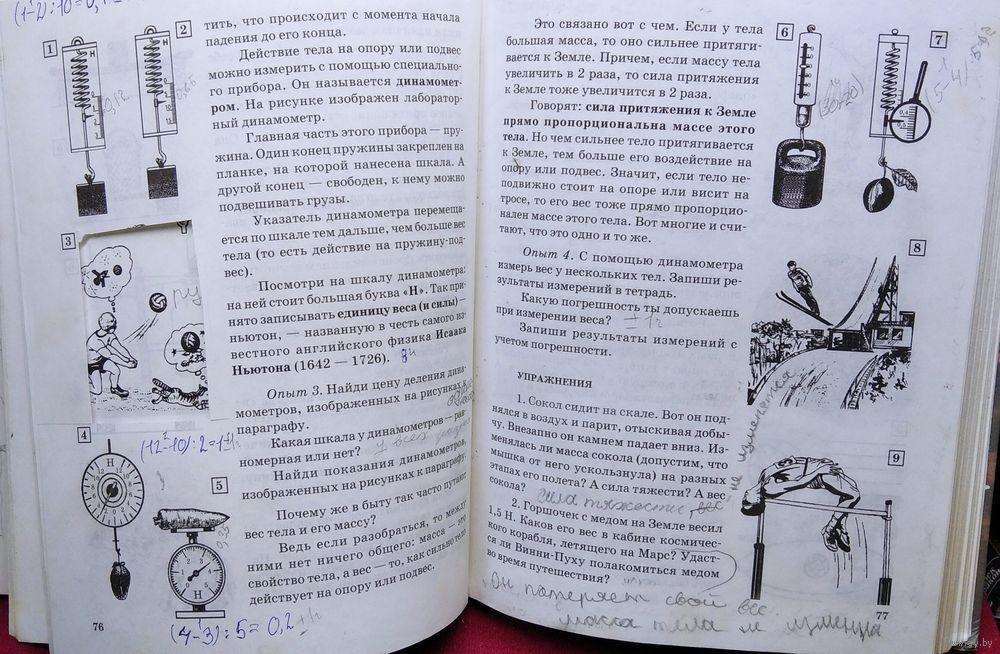 тить, что происходит с момента начала
падения до его конца.
Действие тела на опору или подвес
можно измерить с помощью специально-
го прибора. Он называется динамомет-
ром. На рисунке изображен лаборатор-
ный динамометр.
Главная часть этого прибора — пру-
жина. Один конец пружины закреплен на
планке, на которой нанесена шкала. А
другой конец — свободен, к нему можно
подвешивать грузы.
Указатель динамометра перемеща-
ется по шкале тем дальше, чем больше вес
тела (то есть действие на пружину-под-
вес).
Посмотри на шкалу динамометра:
на ней стоит большая буква «Н». Так при-
нято записывать единицу веса (и силы) —
ньютон, — названную в честь самого из-
вестного английского физика Исаака
Ньютона (1642 — 1726).
Опыт 3. Найди цену деления дина-
мометров, изображенных на рисунках к
параграфу.
Какая шкала у динамометров — рав-
номерная или нет?
Найди показания динамометров,
изображенных на рисунках к параграфу.
Почему же в быту так часто путают
вес тела и его массу?
Ведь если разобраться, то между
ними нет ничего общего: масса — это
свойство тела, а вес — то, как сильно тело
действует на опору или подвес.
1
2
3
4
5
Н
Н
(12-10):2=1
(4-3):5=0,2
76
Это связано вот с чем. Если у тела
большая масса, то оно сильнее притяги-
вается к Земле. Причем, если массу тела
увеличить в 2 раза, то сила притяжения
к Земле тоже увеличится в 2 раза.
Говорят: сила притяжения к Земле
прямо пропорциональна массе этого
тела. Но чем сильнее тело притягивается
к Земле, тем больше его воздействие на
опору или подвес. Значит, если тело не-
подвижно стоит на опоре или висит на
тросе, то его вес тоже прямо пропорцио-
нален массе этого тела. Вот многие и счи-
тают, что это одно и то же.
Опыт 4. С помощью динамометра
измерь вес у нескольких тел. Запиши ре-
зультаты измерений в тетрадь.
Какую погрешность ты допускаешь
при измерении веса?
Запиши результаты измерений с
учетом погрешности.
УПРАЖНЕНИЯ
1. Сокол сидит на скале. Вот он под-
нялся в воздух и парит, отыскивая добы-
чу. Внезапно он камнем падает вниз. Из-
менялась ли масса сокола (допустим, что
мышка от него ускользнула) на разных
этапах его полета? А сила тяжести? А вес
сокола? сила тяжести, вес
2. Горшочек с медом на Земле весил
1,5 Н. Каков его вес в кабине космичес-
кого корабля, летящего на Марс? Удаст-
ся ли Винни-Пуху полакомиться медом
во время путешествия?
Он потеряет свой вес.
масса тела
6
7
8
9
77